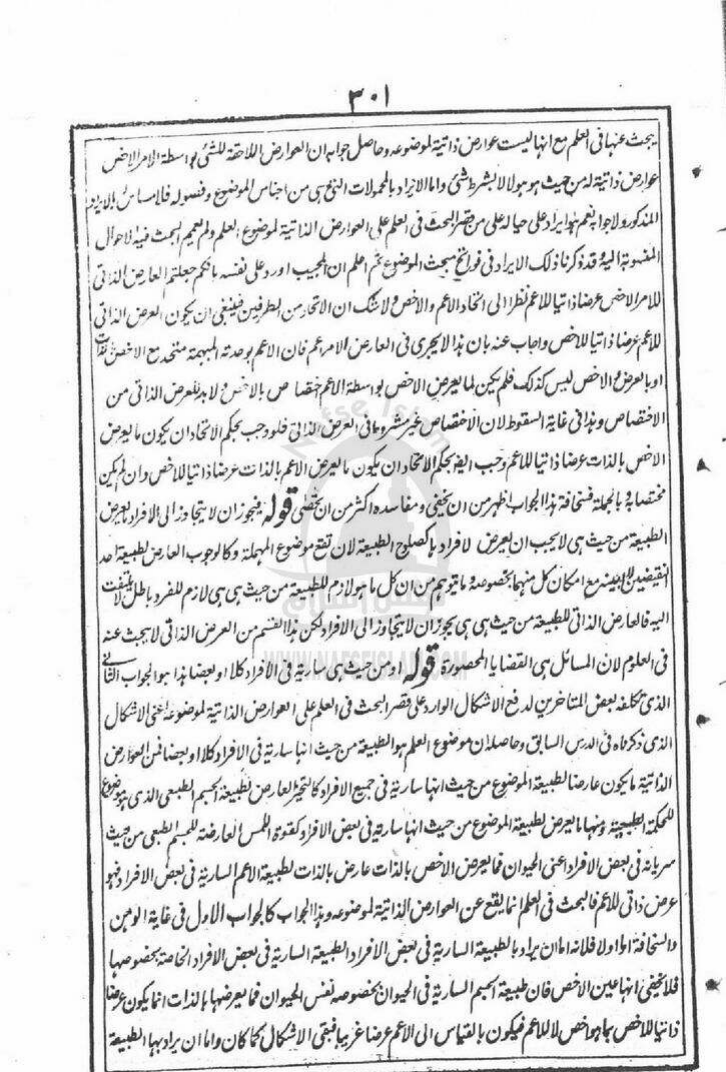 ٣٠١
يبحث عنها فى العلم مع انها ليست عوارض ذاتية لموضوعه وحاصل جوابه ان العوارض اللاحقة للشئ بواسطة الامر الاخص
عوارض ذاتية له من حيث هو هو لا بشرط شئ واما الايراد بالمحمولات التى هى من اجناس الموضوع وفصوله فلا مساس بالايراد
المذكور ولا جوابه نعم هو ايراد على حياله على من قصر البحث فى العلم على العوارض الذاتية لموضوع العلم ولم يعمم البحث فيه لاحوال
المنسوبة اليه وقد ذكرنا ذلك الايراد فى فواتح مبحث الموضوع ثم اعلم ان المجيب اورد على نفسه بانكم جعلتم العارض الذاتى
للامر الاخص عرضا ذاتيا للاعم نظرا الى اتحاد الاعم والاخص ولا شك ان الاتحاد من الطرفين فينبغى ان يكون العرض الذاتى
للاعم عرضا ذاتيا للاخص واجاب عنه بان هذا لا يجرى فى العارض الامر اعم فان الاعم بوحدته المبهمة متحد مع الاخص
او بالعرض والاخص ليس كذلك فلم يكن لما يعرض الاخص بواسطة الاعم اختصاص بالاخص ولا بد للعرض الذاتى من
الاختصاص وهذا فى غاية السقوط لان الاختصاص غير مشروط فى العرض الذاتى فلو وجب بحكم الاتحاد ان يكون ما يعرض
الاخص بالذات عرضا ذاتيا للاعم وجب ايضا بحكم الاتحاد ان يكون ما يعرض الاعم بالذات عرضا ذاتيا للاخص وان لم يكن
مختصا به وبالجملة فسخافة هذا الجواب اظهر من ان يخفى ومفاسده اكثر من ان تحصى قوله فيجوز ان لا يتجاوز الى الافراد ما يعرض
الطبيعة من حيث هى لا يجب ان يعرض لافراد كصلوح الطبيعة لان تقع موضوع المهملة وكالوجوب العارض لطبيعة احد
النقيضين لا بعينه مع امكان كل منهما بخصوصه وما يتوهم من ان كل ما هو لازم للطبيعة من حيث هى هى لازم للفرد باطل لا يلتفت
اليه فالعارض الذاتى للطبيعة من حيث هى هى يجوز ان لا يتجاوز الى الافراد لكن هذا القسم من العرض الذاتى لا يبحث عنه
فى العلوم لان المسائل هى القضايا المحصورة قوله او من حيث هى سارية فى الافراد كلا او بعضا هذا هو الجواب الثانى
الذى تكلفه بعض المتاخرين لدفع الاشكال الوارد على قصر البحث فى العلم على العوارض الذاتية لموضوعه اعنى الاشكال
الذى ذكرناه فى الدرس السابق وحاصله ان موضوع العلم هو الطبيعة من حيث انها سارية فى الافراد كلا او بعضا فمن العوارض
الذاتية ما يكون عارضا لطبيعة الموضوع من حيث انها سارية فى جميع الافراد كالتحيز العارض لطبيعة الجسم الطبعى الذى هو موضوع
للحكمة الطبيعية ومنها ما يعرض لطبيعة الموضوع من حيث انها سارية فى بعض الافراد كقوة اللمس العارضة للجسم الطبعى من حيث
سريانه فى بعض الافراد اعنى الحيوان فما يعرض الاخص بالذات عارض بالذات لطبيعة الاعم السارية فى بعض الافراد فهو
عرض ذاتى للاعم فالبحث فى العلم انما يقع عن العوارض الذاتية لموضوعه وهذا الجواب كالجواب الاول فى غاية الوهن
والسخافة اما اولا فلانه اما ان يراد بالطبيعة السارية فى بعض الافراد الطبيعة السارية فى بعض الافراد الخاصة بخصوصها
فلا يخفى انها عين الاخص فان طبيعة الجسم السارية فى الحيوان بخصوصه نفس الحيوان فما يعرضها بالذات انما يكون عرضا
ذاتيا للاخص بما هو اخص لا للاعم فيكون بالقياس الى الاعم عرضا غريبا فبقى الاشكال كما كان واما ان يراد بها الطبيعة
Nafse Islam
نفس اسلام
WWW.NAFSEISLAM.COM